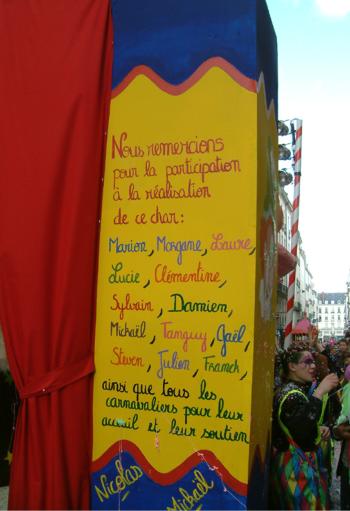 Nous remercions
pour la participation
à la réalisation
de ce char:
Marion, Morgane, Laure,
Lucie, Clémentine,
Sylvain, Damien,
Mickaël, Tanguy, Gaël,
Steven, Julien, Franck
ainsi que tous les
carnavaliers pour leur
accueil et leur soutien
Nicolas
Mickaël